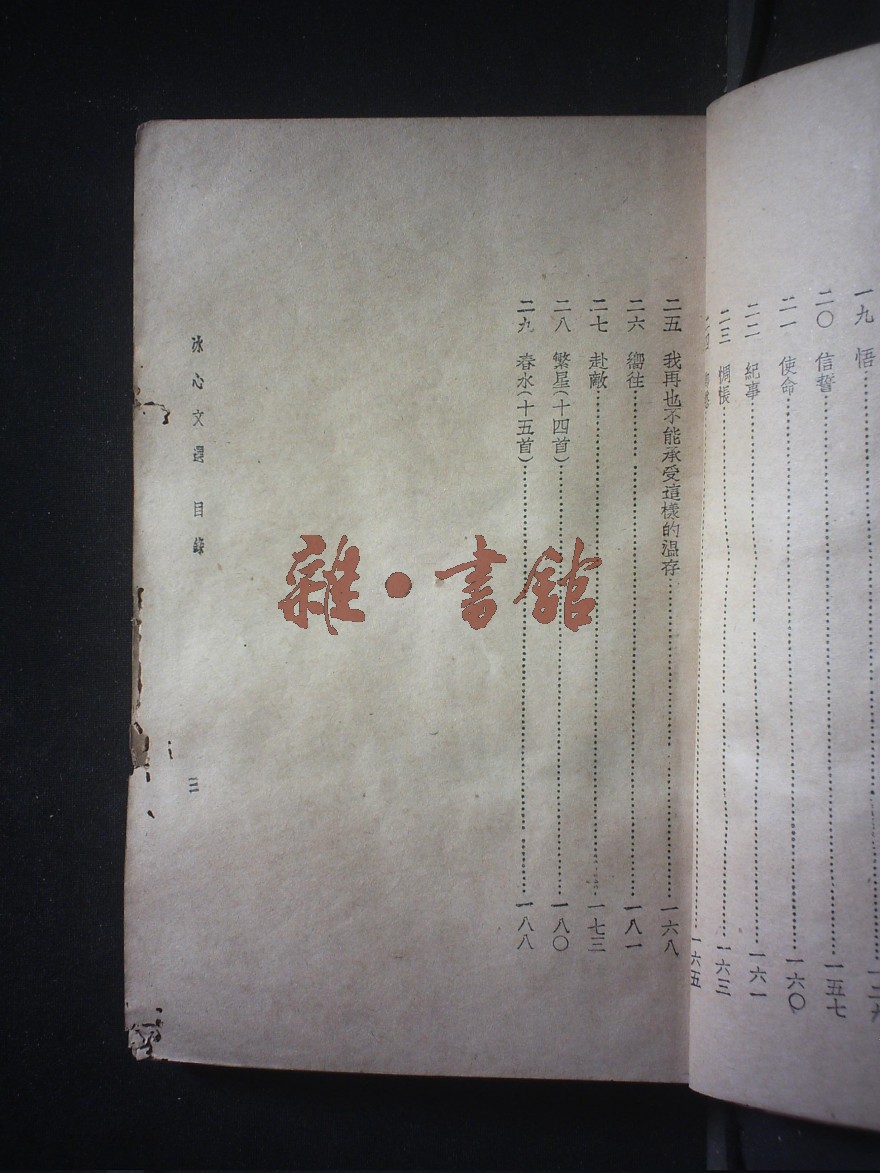 一九 悟
二〇 信誓……一五七
二一 使命……一六〇
二二 紀事……一六一
二三 惆悵……一六三
一六五
二五 我再也不能承受這樣的温存……一六八
二六 嚮往……一八一
二七 赴敵……一七三
二八 繁星(十四首)……一八〇
二九 春水(十五首)……一八八
冰心文選 目錄
三
雜·書館